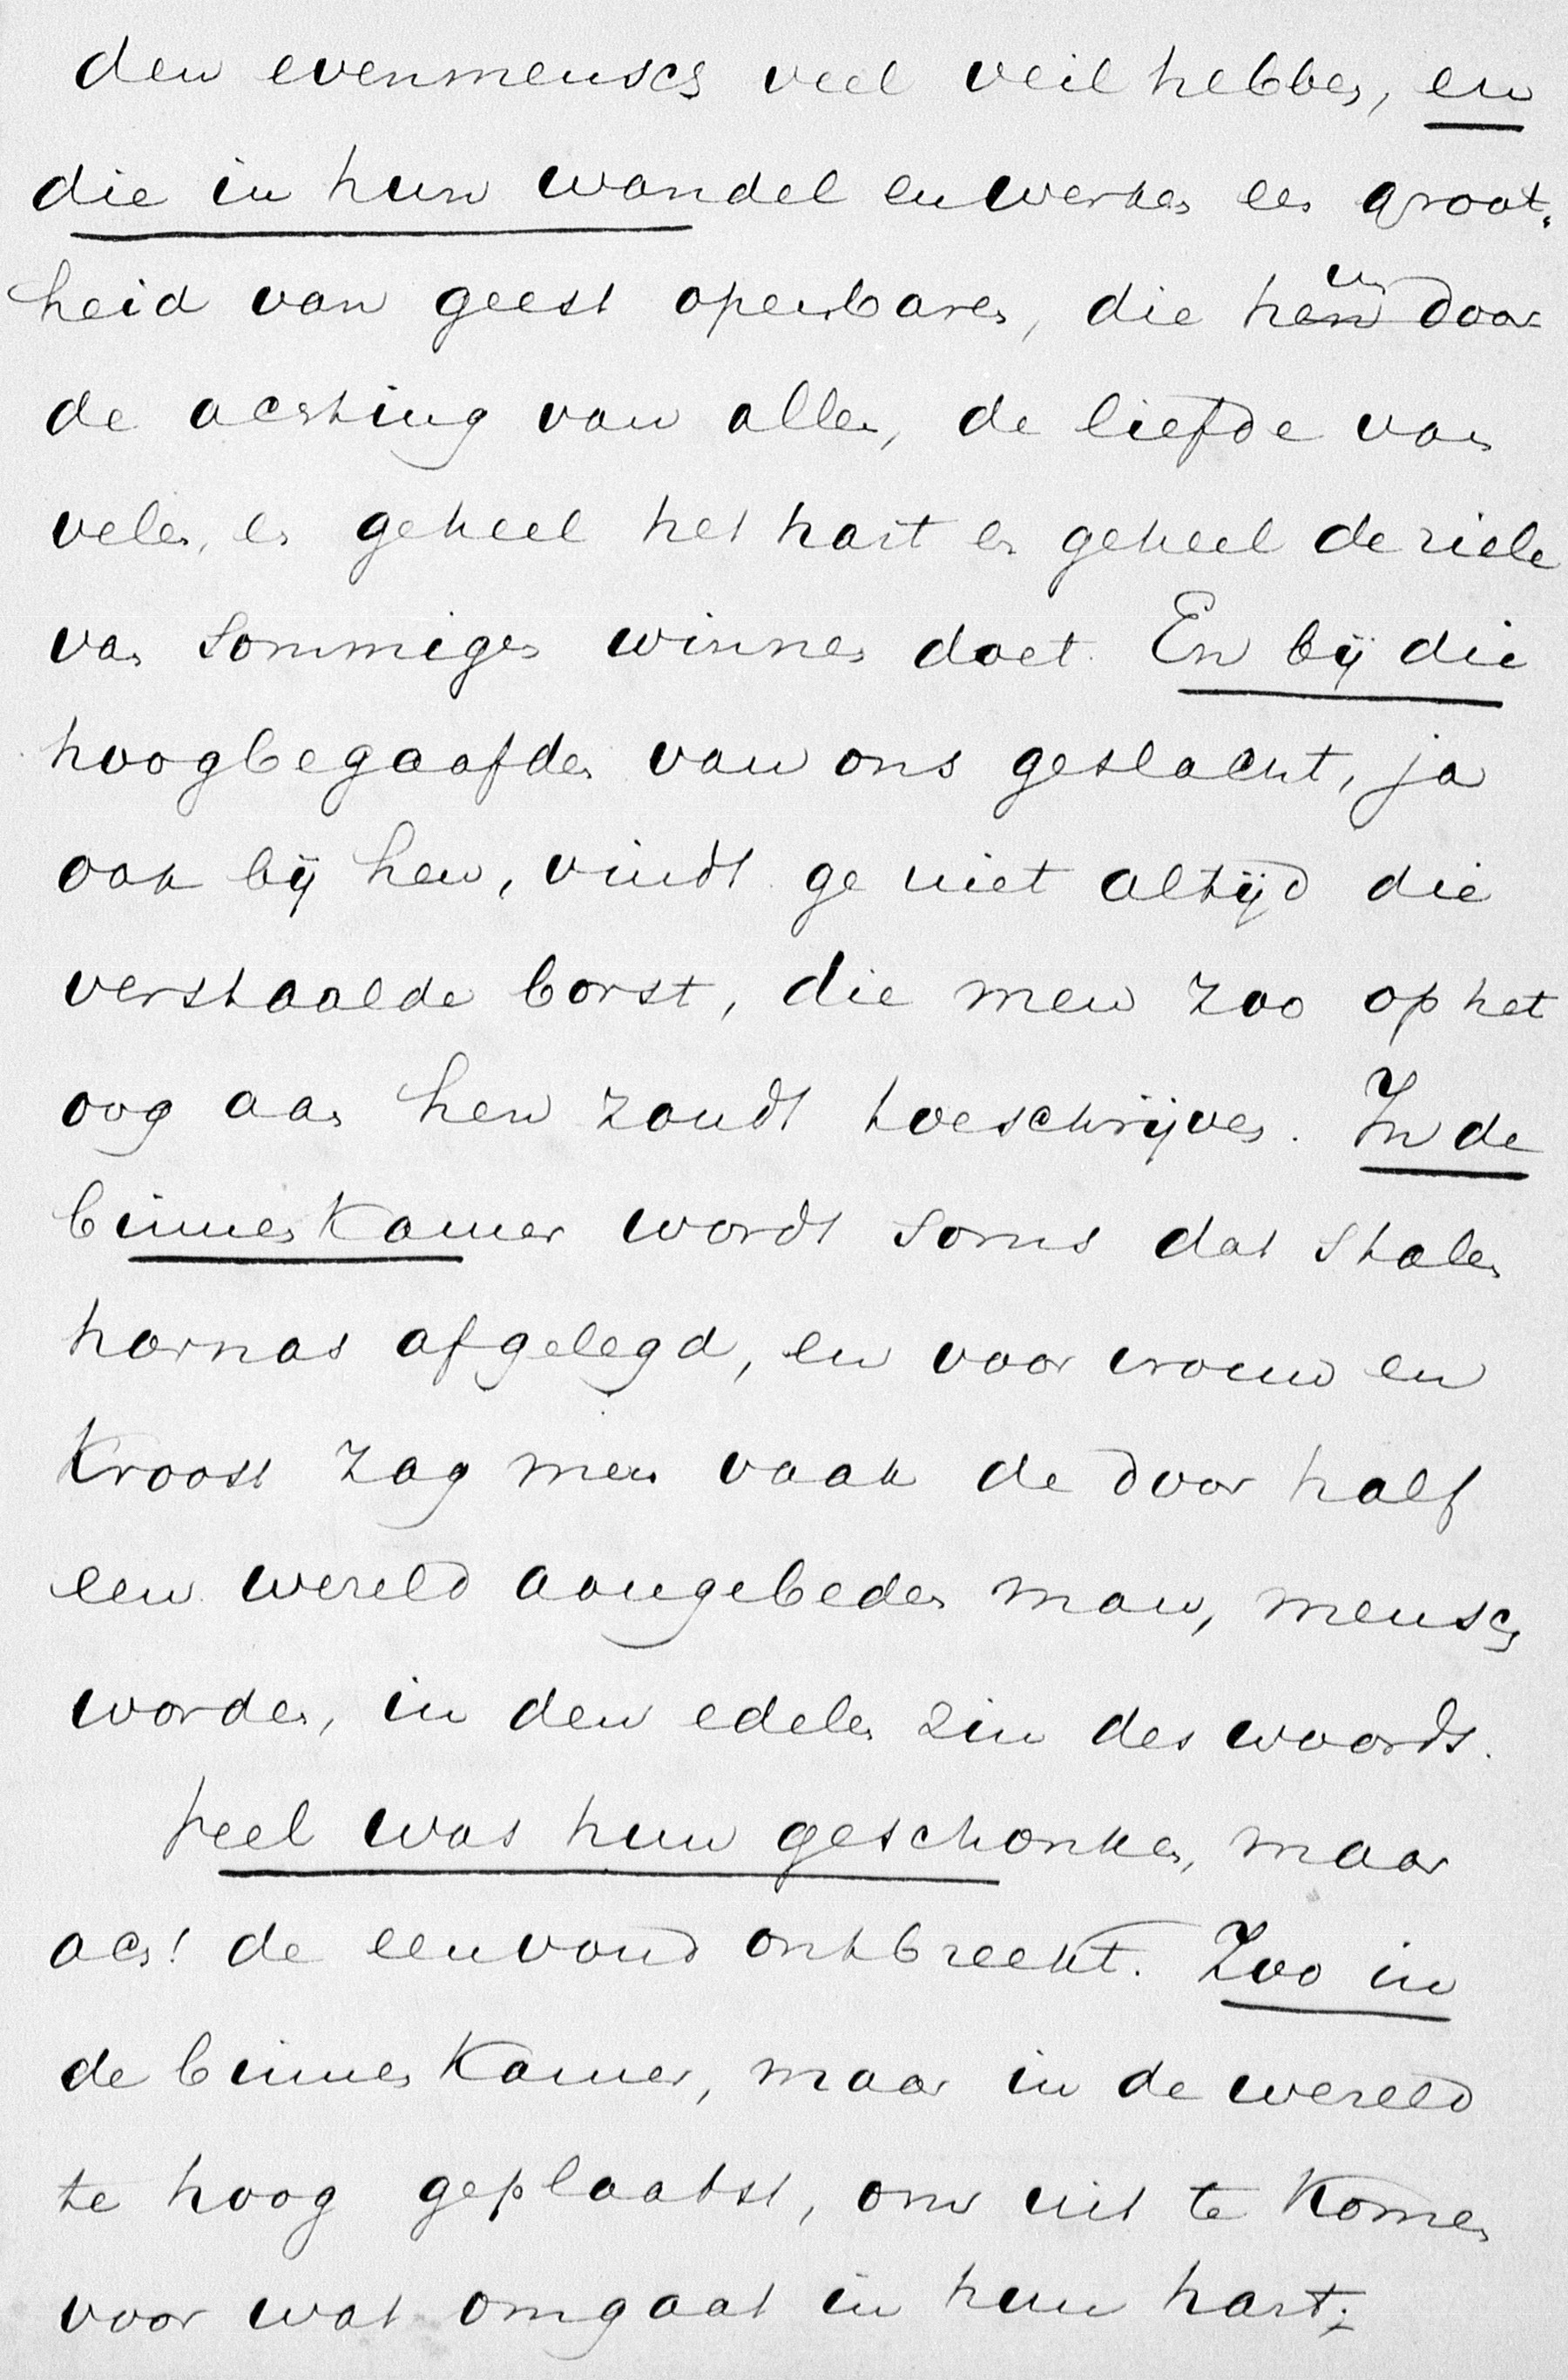 den evenmensch veel veil hebben, en
die in hun wandel en werken een groot-
heid van geest openbaren, die hun door
de achting van allen, de liefde van
velen, en geheel het hart en geheel de ziele
van sommigen winnen doet. En bij die
hoogbegaafden van ons geslacht, ja
ook bij hen, vindt ge niet altijd die
verstaalde borst, die men zoo op het
oog aan hen zoudt toeschrijven. In de
binnenkamer wordt soms dat stalen
harnas afgelegd, en voor vrouw en
kroost zag men vaak de door half
een wereld aangebeden man, mensch
worden, in den edelen zin des woords.
Veel was hun geschonken, maar
ach! de eenvoud ontbreekt. Zoo in
de binnenkamer, maar in de wereld
te hoog geplaatst, om uit te komen
voor wat omgaat in hun hart;